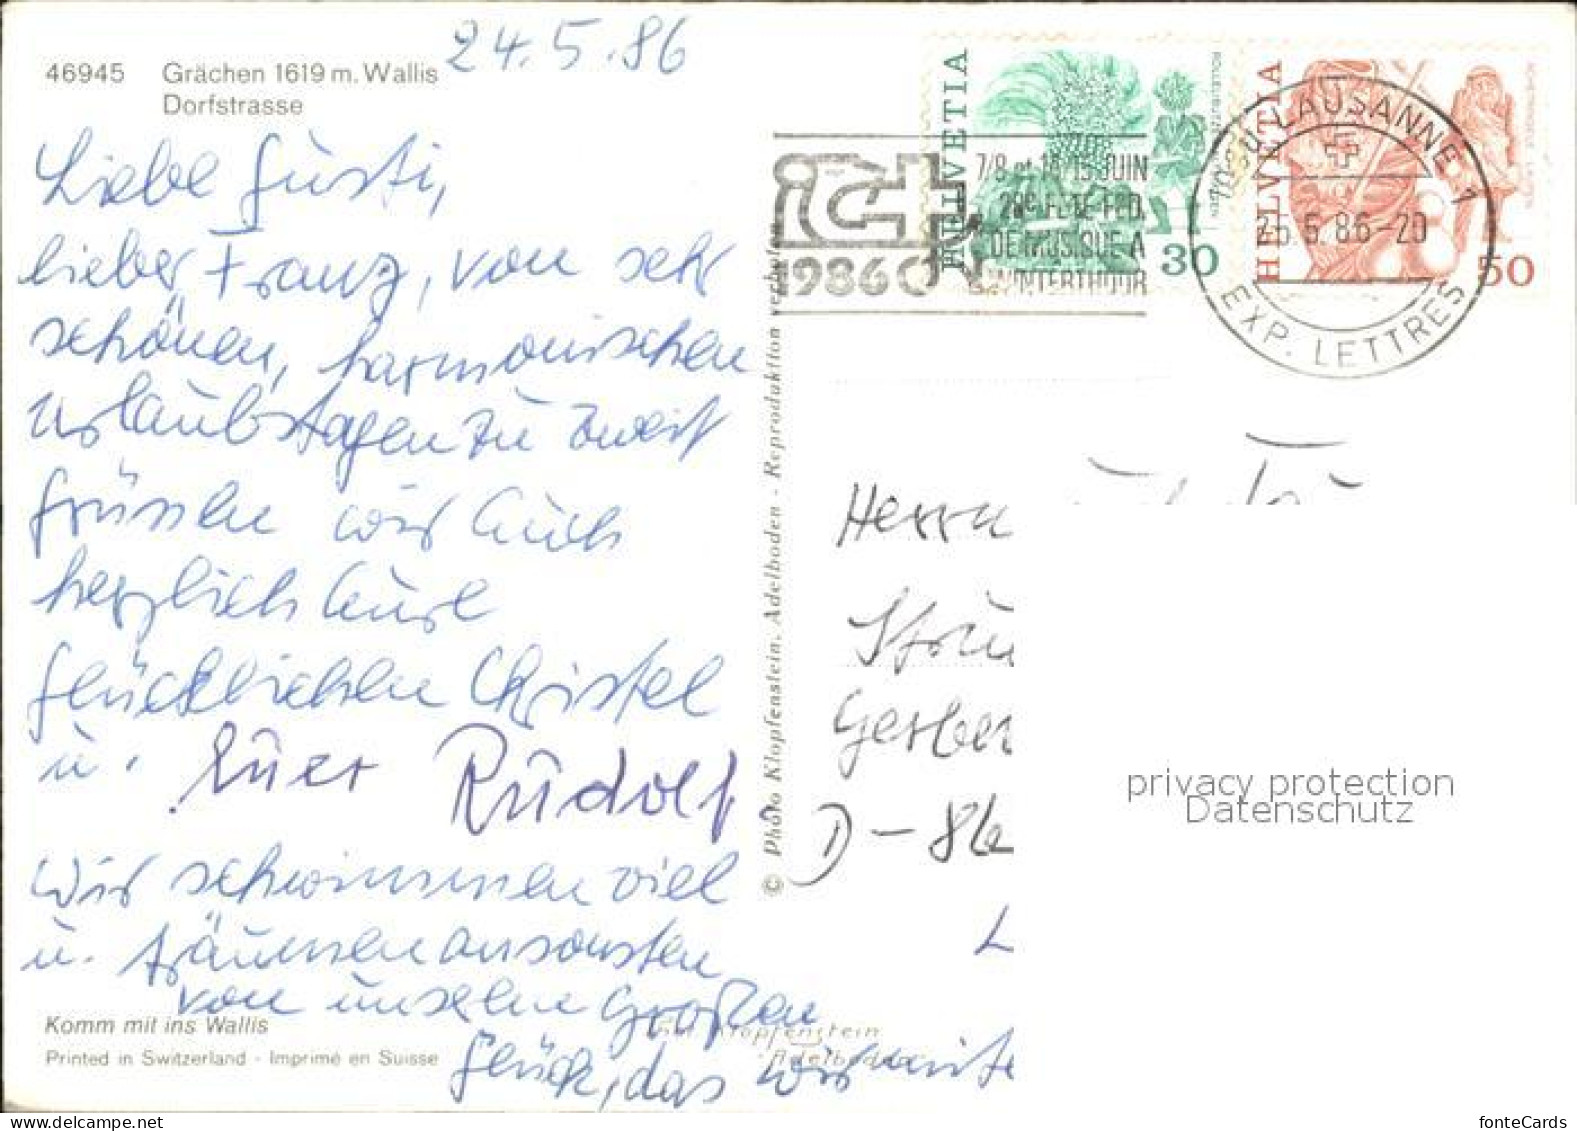 24.5.86
46945 Grächen 1619 m. Wallis
Dorfstrasse
Liebe Gusti,
lieber Franz, von sehr
schönen, harmonischen
Urlaubstagen zu zweit
grüssen wir Euch
herzlich Eure
glücklichen Christel
u. Euer Rudolf
Wir schwimmen viel
u. träumen ansonsten
von unserem Großen
Glück, das wir mite
Komm mit ins Wallis
Printed in Switzerland - Imprimé en Suisse
© Photo Klopfenstein, Adelboden - Reproduktion verboten
Klopfenstein
Adelboden
HELVETIA
30
HELVETIA
50
7/8 et 14/15 JUIN
FETE FED.
DE MUSIQUE A
WINTERTHOUR
1986
LAUSANNE 1
5.86-20
EXP. LETTRES
Herrn
Gerber
D-86
L
privacy protection
Datenschutz
www.delcampe.net
fonteCards